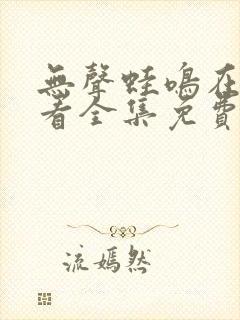 無聲蛙鳴在
看全集免費
流嫣然